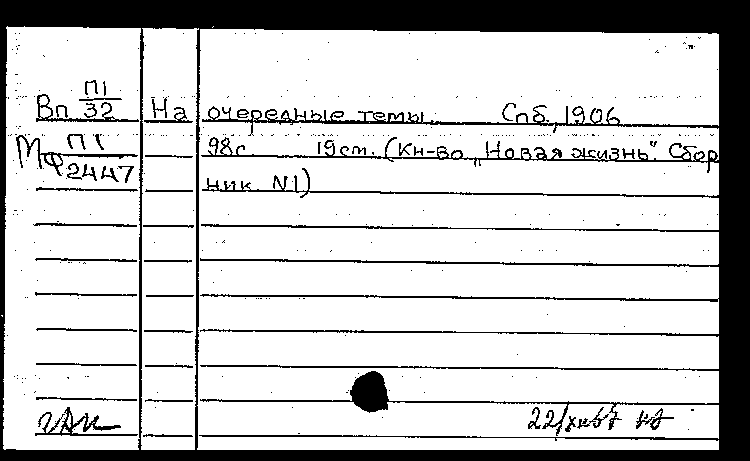 Вп П1/32 На очередные темы. Спб, 1906
МФ П1/2447 98с. 19 см. (Кн-во „Новая жизнь". Сбор
ник N1)